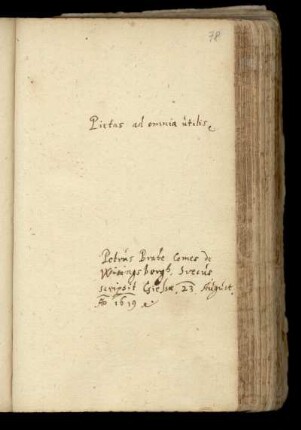 78
Pietas ad omnia ùtilis
Petrùs Brahe Comes de
Wisingsborgh, Svecùs
scripsit Giessæ, 23 Aùgùst.
Aº 1619